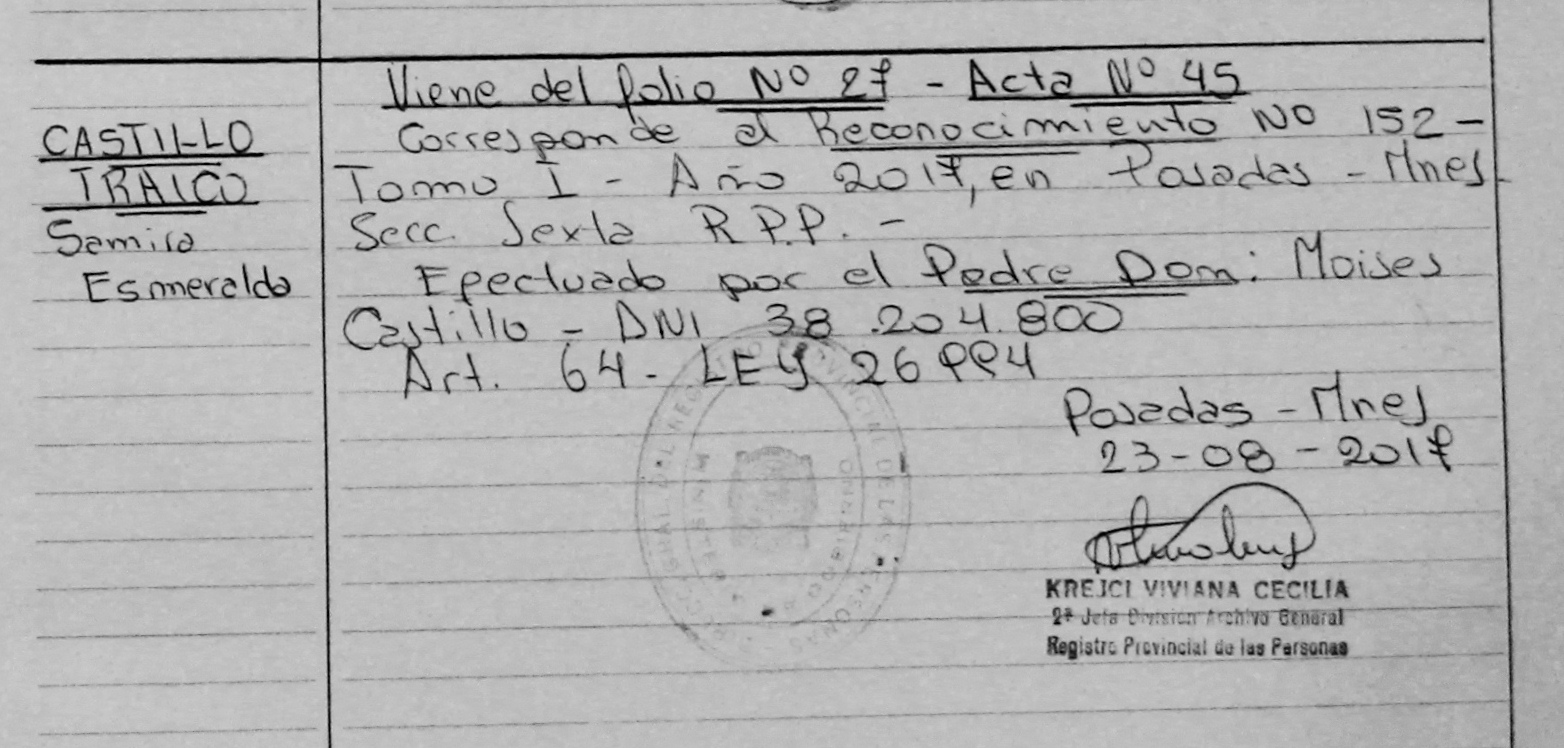 Viene del folio Nº 27 - Acta Nº 45
CASTILLO
TRAICO
Samira
Esmeralda
Corresponde al Reconocimiento Nº 152 -
Tomo I - Año 2017, en Posadas - Mnes
Secc. Sexta R.P.P. -
Efectuado por el Padre Don: Moises
Castillo - DNI 38.204.800
Art. 64 - LEY 26994
Posadas - Mnes
23-08-2017
KREJCI VIVIANA CECILIA
2ª Jefa División Archivo General
Registro Provincial de las Personas